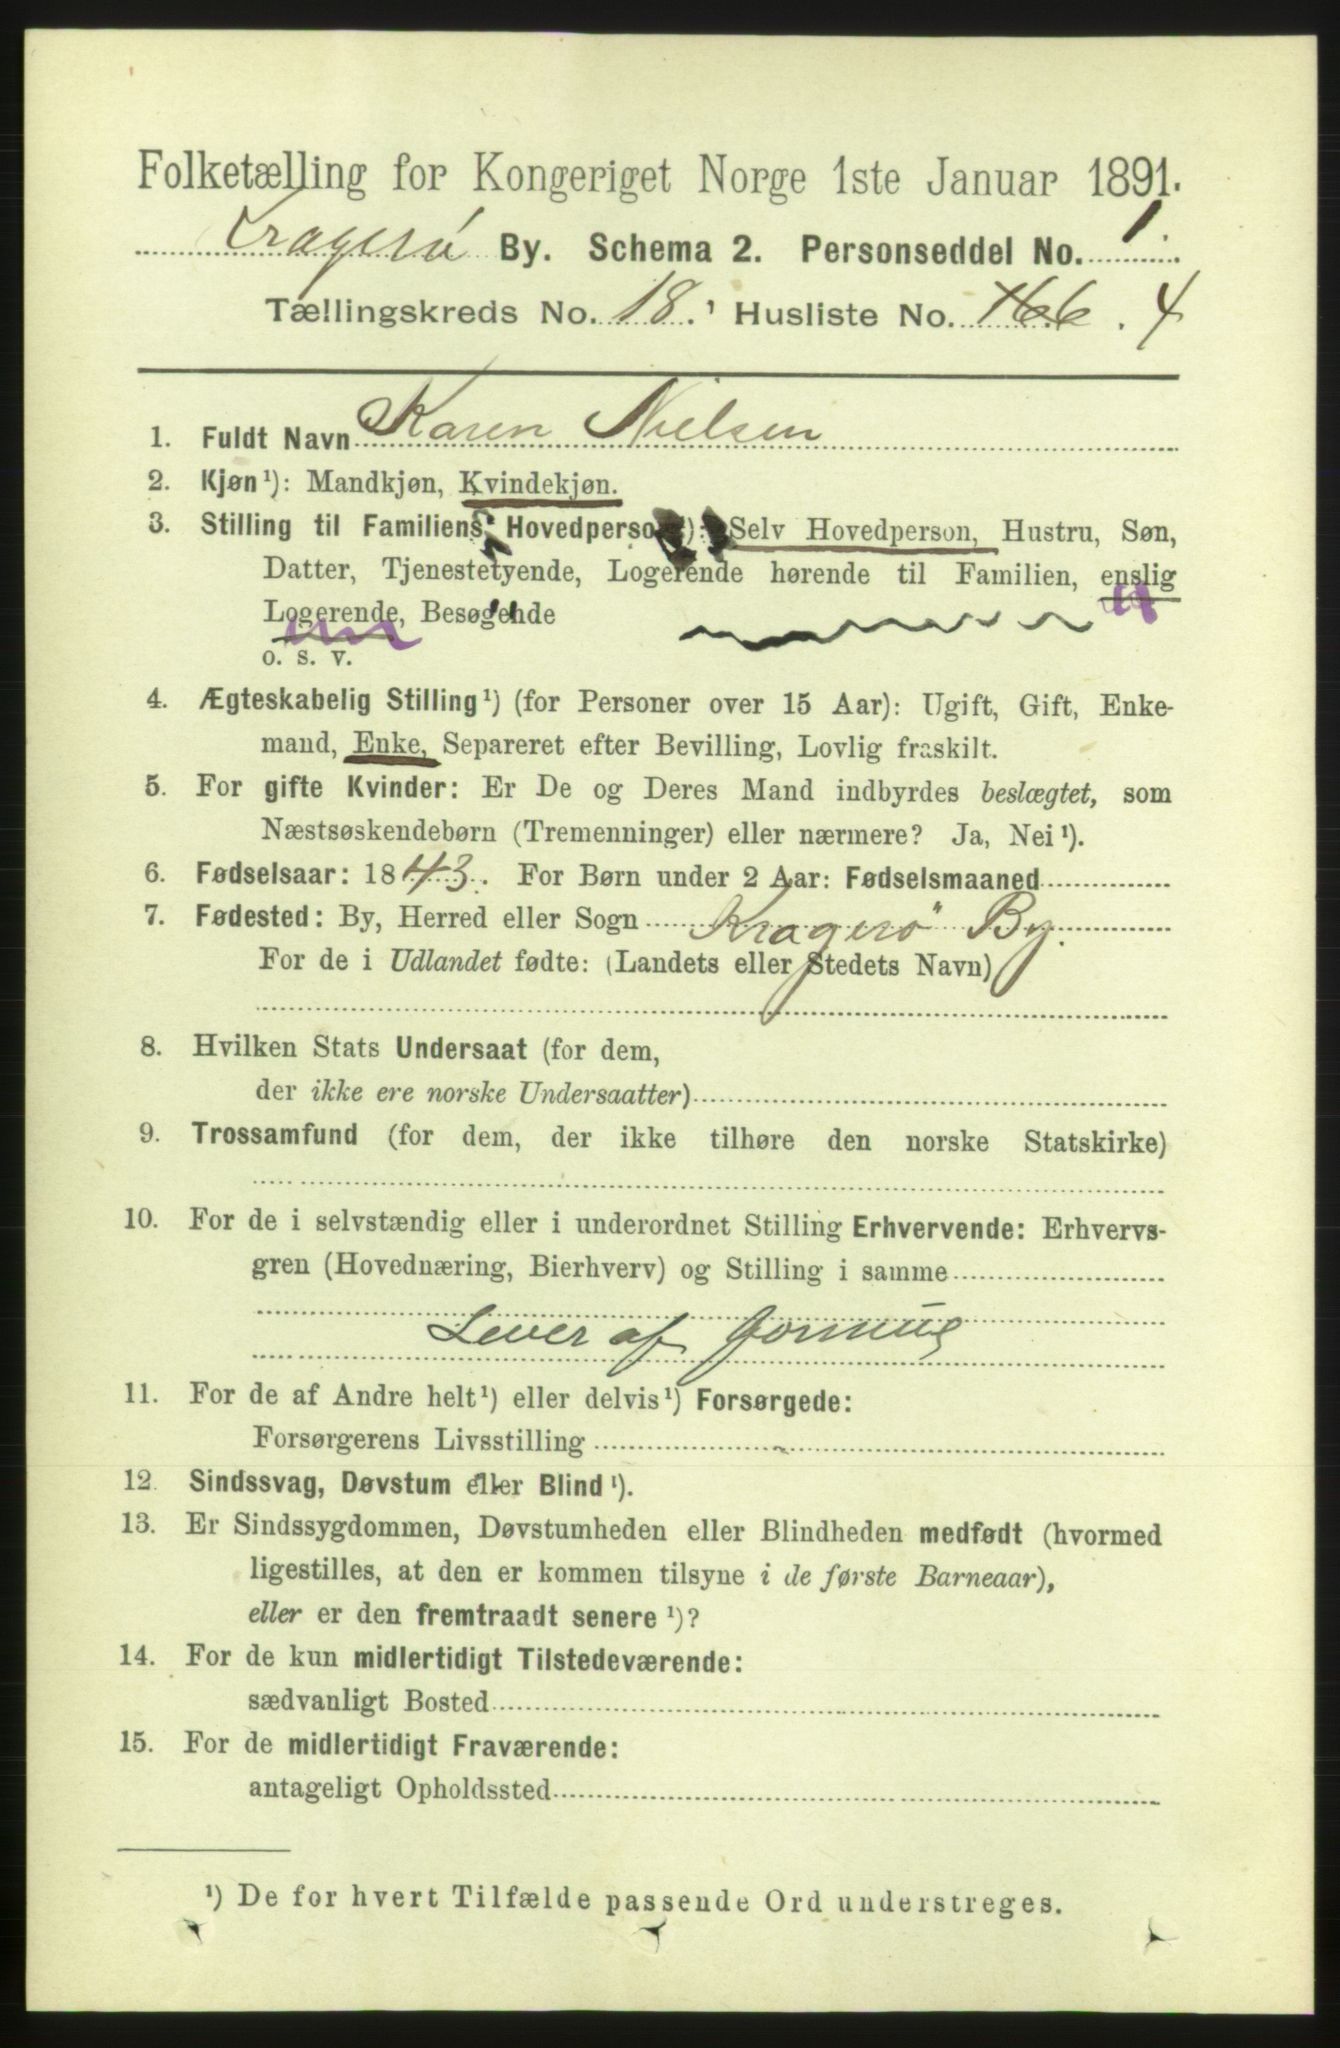 Folketælling for Kongeriget Norge 1ste Januar 1891.
Kragerø By. Schema 2. Personseddel No. 1.
Tællingskreds No. 18. Husliste No. 166. 4
1. Fuldt Navn Karen Nielsen
2. Kjøn¹): Mandkjøn, Kvindekjøn.
3. Stilling til Familiens Hovedperson¹): Selv Hovedperson, Hustru, Søn,
Datter, Tjenestetyende, Logerende hørende til Familien, enslig
Logerende, Besøgende
o. s. v.
4. Ægteskabelig Stilling¹) (for Personer over 15 Aar): Ugift, Gift, Enke-
mand, Enke, Separeret efter Bevilling, Lovlig fraskilt.
5. For gifte Kvinder: Er De og Deres Mand indbyrdes beslægtet, som
Næstsøskendebørn (Tremenninger) eller nærmere? Ja, Nei¹).
6. Fødselsaar: 1843. For Børn under 2 Aar: Fødselsmaaned
7. Fødested: By, Herred eller Sogn Kragerö By.
For de i Udlandet fødte: (Landets eller Stedets Navn)
8. Hvilken Stats Undersaat (for dem,
der ikke ere norske Undersaatter)
9. Trossamfund (for dem, der ikke tilhøre den norske Statskirke)
10. For de i selvstændig eller i underordnet Stilling Erhvervende: Erhvervs-
gren (Hovednæring, Bierhverv) og Stilling i samme
Lever af Formue
11. For de af Andre helt¹) eller delvis¹) Forsørgede:
Forsørgerens Livsstilling
12. Sindssvag, Døvstum eller Blind¹).
13. Er Sindssygdommen, Døvstumheden eller Blindheden medfødt (hvormed
ligestilles, at den er kommen tilsyne i de første Barneaar),
eller er den fremtraadt senere¹)?
14. For de kun midlertidigt Tilstedeværende:
sædvanligt Bosted
15. For de midlertidigt Fraværende:
antageligt Opholdssted
¹) De for hvert Tilfælde passende Ord understreges.